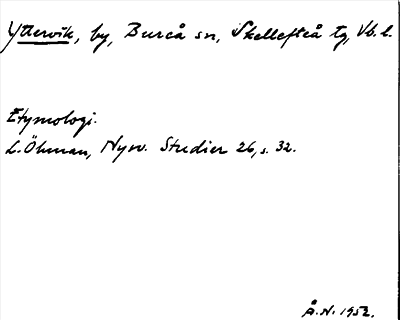 Yttervik, by, Bureå sn, Skellefteå tg, Vb. l.
Etymologi.
L. Öhman, Nysv. Studier 26, s. 32.
Å.N. 1952.